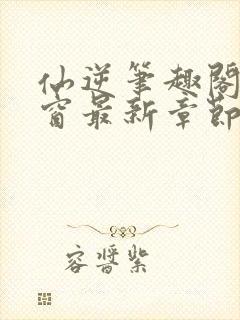 仙逆笔趣阁
窗最新章节
容醬紫